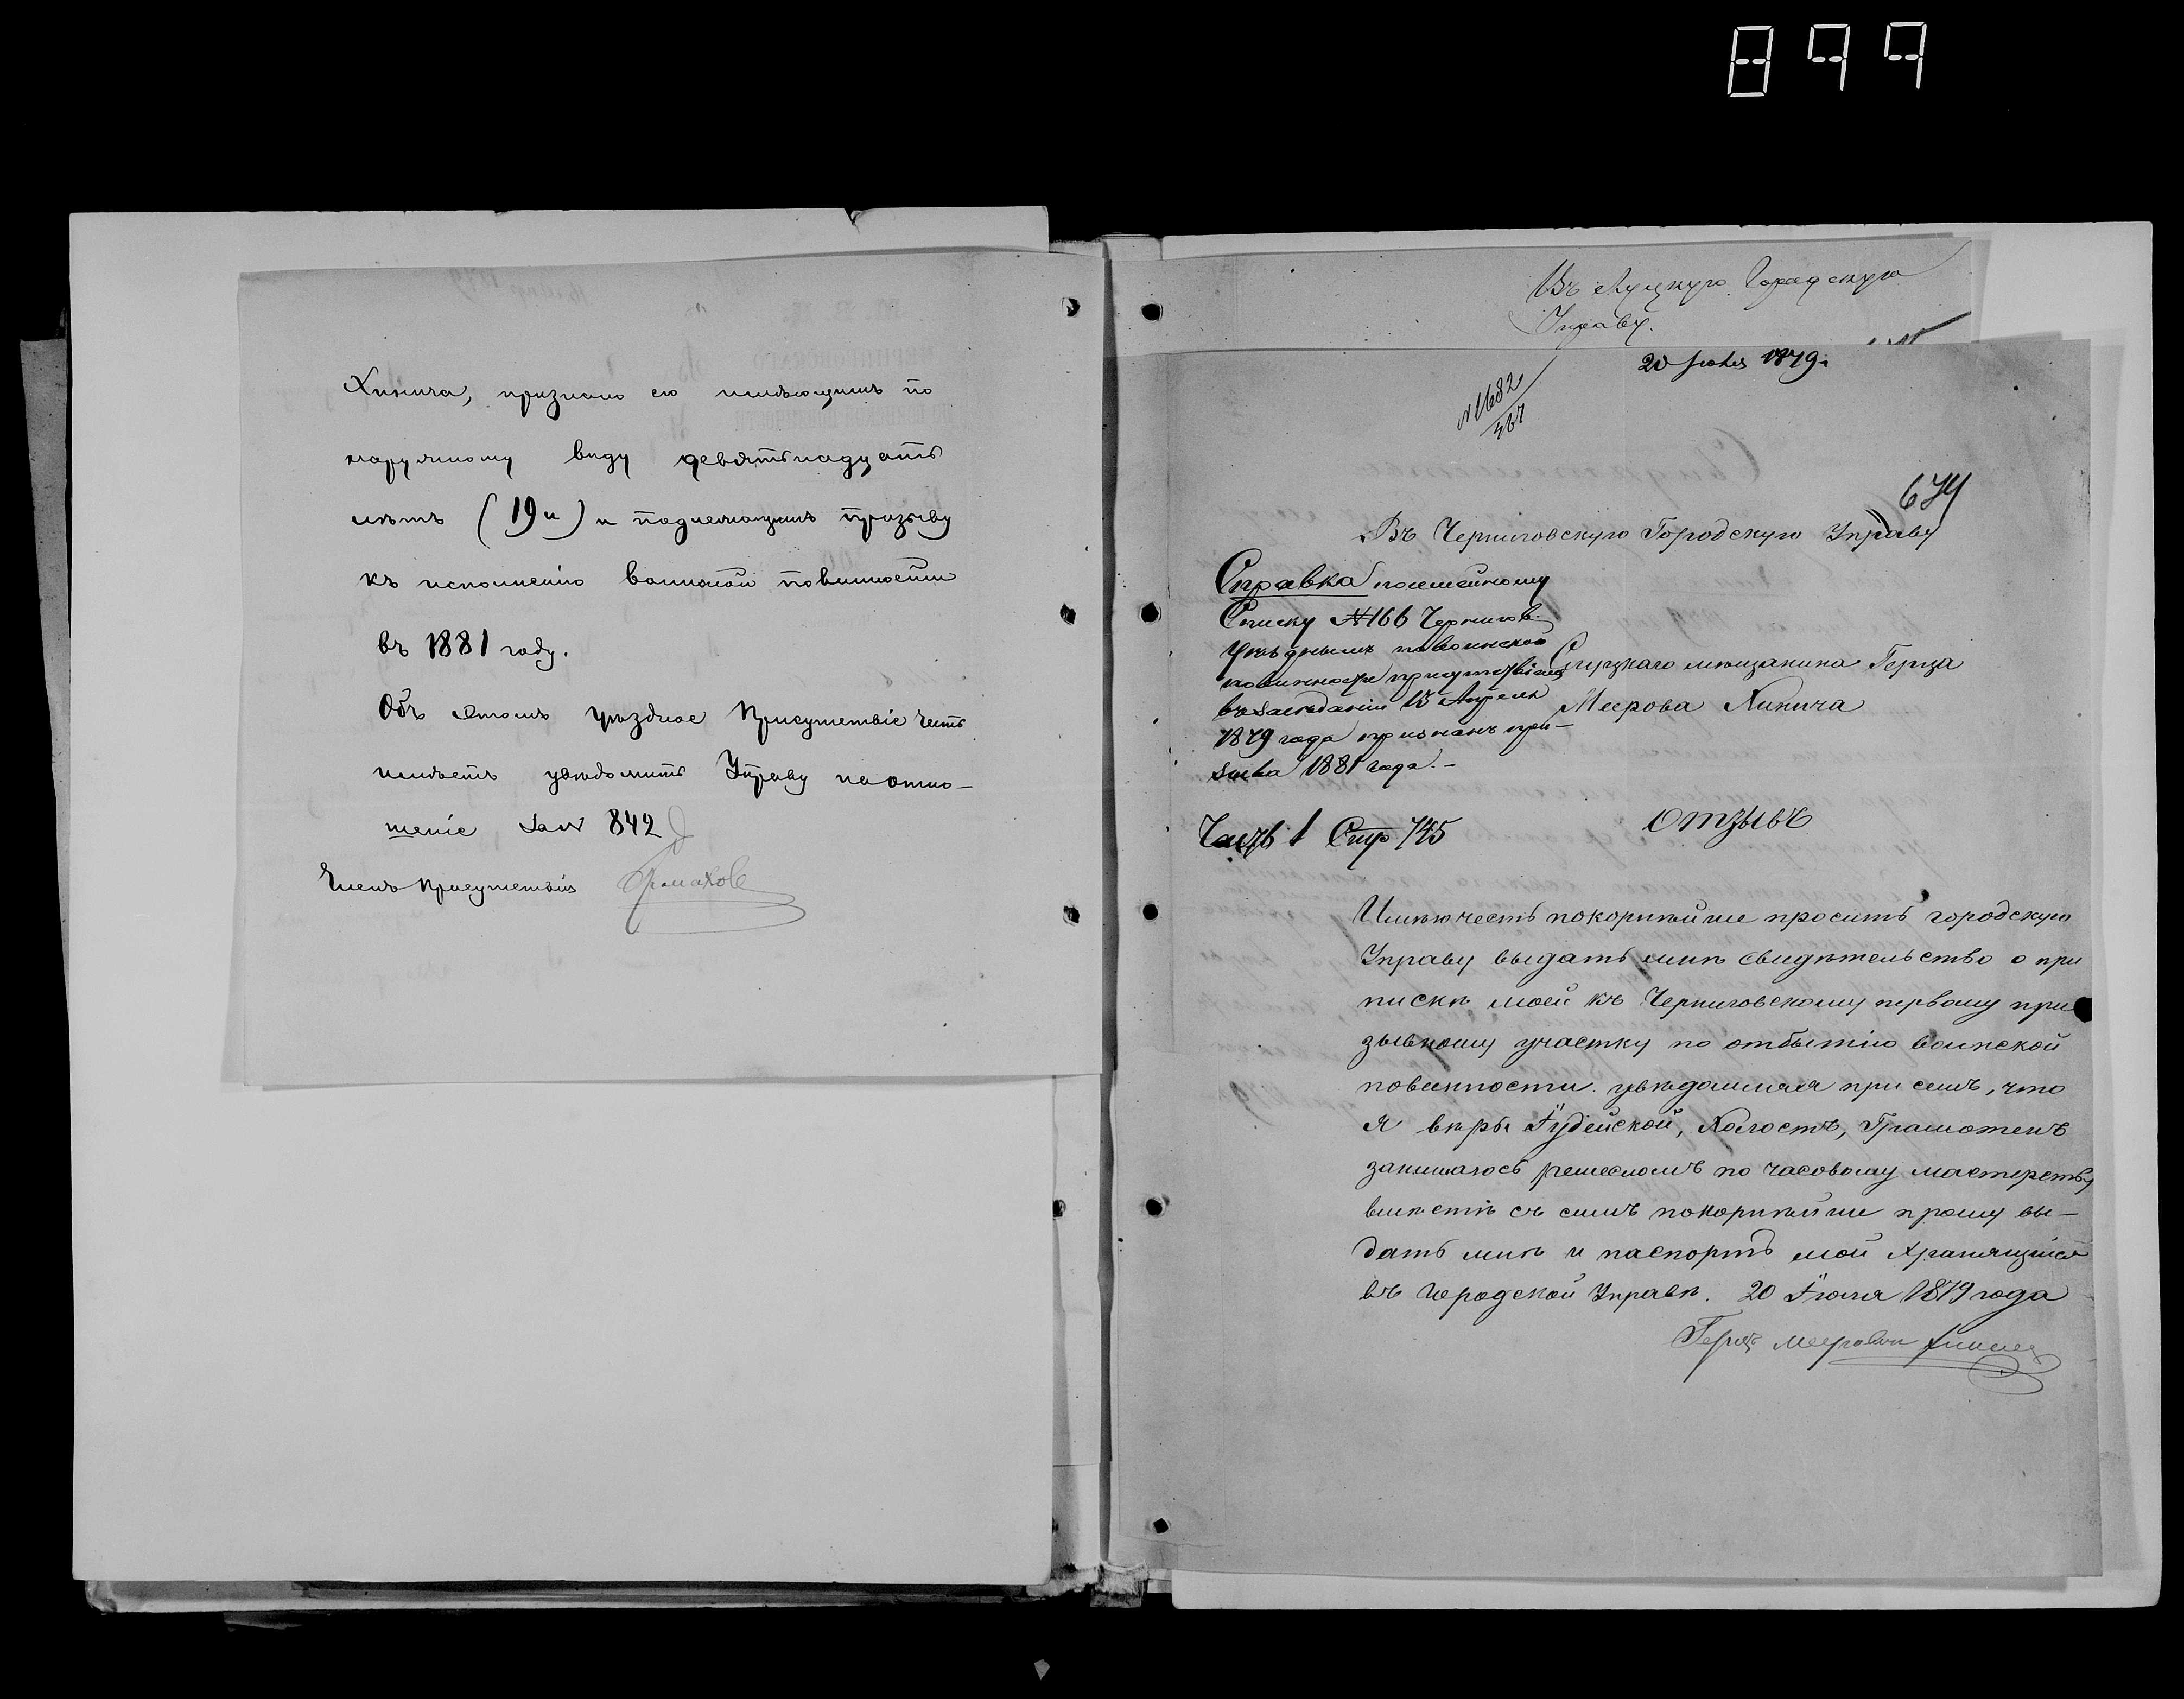 899
Хинича, признало его имѣющимъ по
наружному виду девятьнадцать
лѣтъ (19ть) и подлежащимъ призыву
къ исполненію воинской повинности
въ 1881 году.
Объ этомъ уѣздное Присутствіе честь
имѣетъ увѣдомить Управу на отно-
шеніе за № 842
Членъ Присутствія
Въ Луцкую Городскую
Управу.
20 Іюля 1879.
№ 1682
674
Въ Черниговскую Городскую Управу
Справка по семейному
Списку № 166 Чернигов.
уѣзднымъ по воинской
повинности присутствіемъ
въ засѣданіи 13 Апрѣля
1879 года признанъ при-
зыва 1881 года.-
Часть 1 Стр 745
мѣщанина Герца
Меерова Хинича
Отзывъ
Имѣю честь покорнѣйше просить городскую
Управу выдать мнѣ свидѣтельство о при
пискѣ моей къ Черниговскому первому при
зывному участку по отбытію воинской
повинности. увѣдомляя при семъ, что
я вѣры Іудейской, Холостъ, Грамотенъ
занимаюсь ремесломъ по часовому мастерству
вмѣстѣ съ симъ покорнѣйше прошу вы-
дать мнѣ и паспортъ мой хранящійся
въ городской Управѣ. 20 Іюля 1879 года
Герцъ Меровичъ Хинич